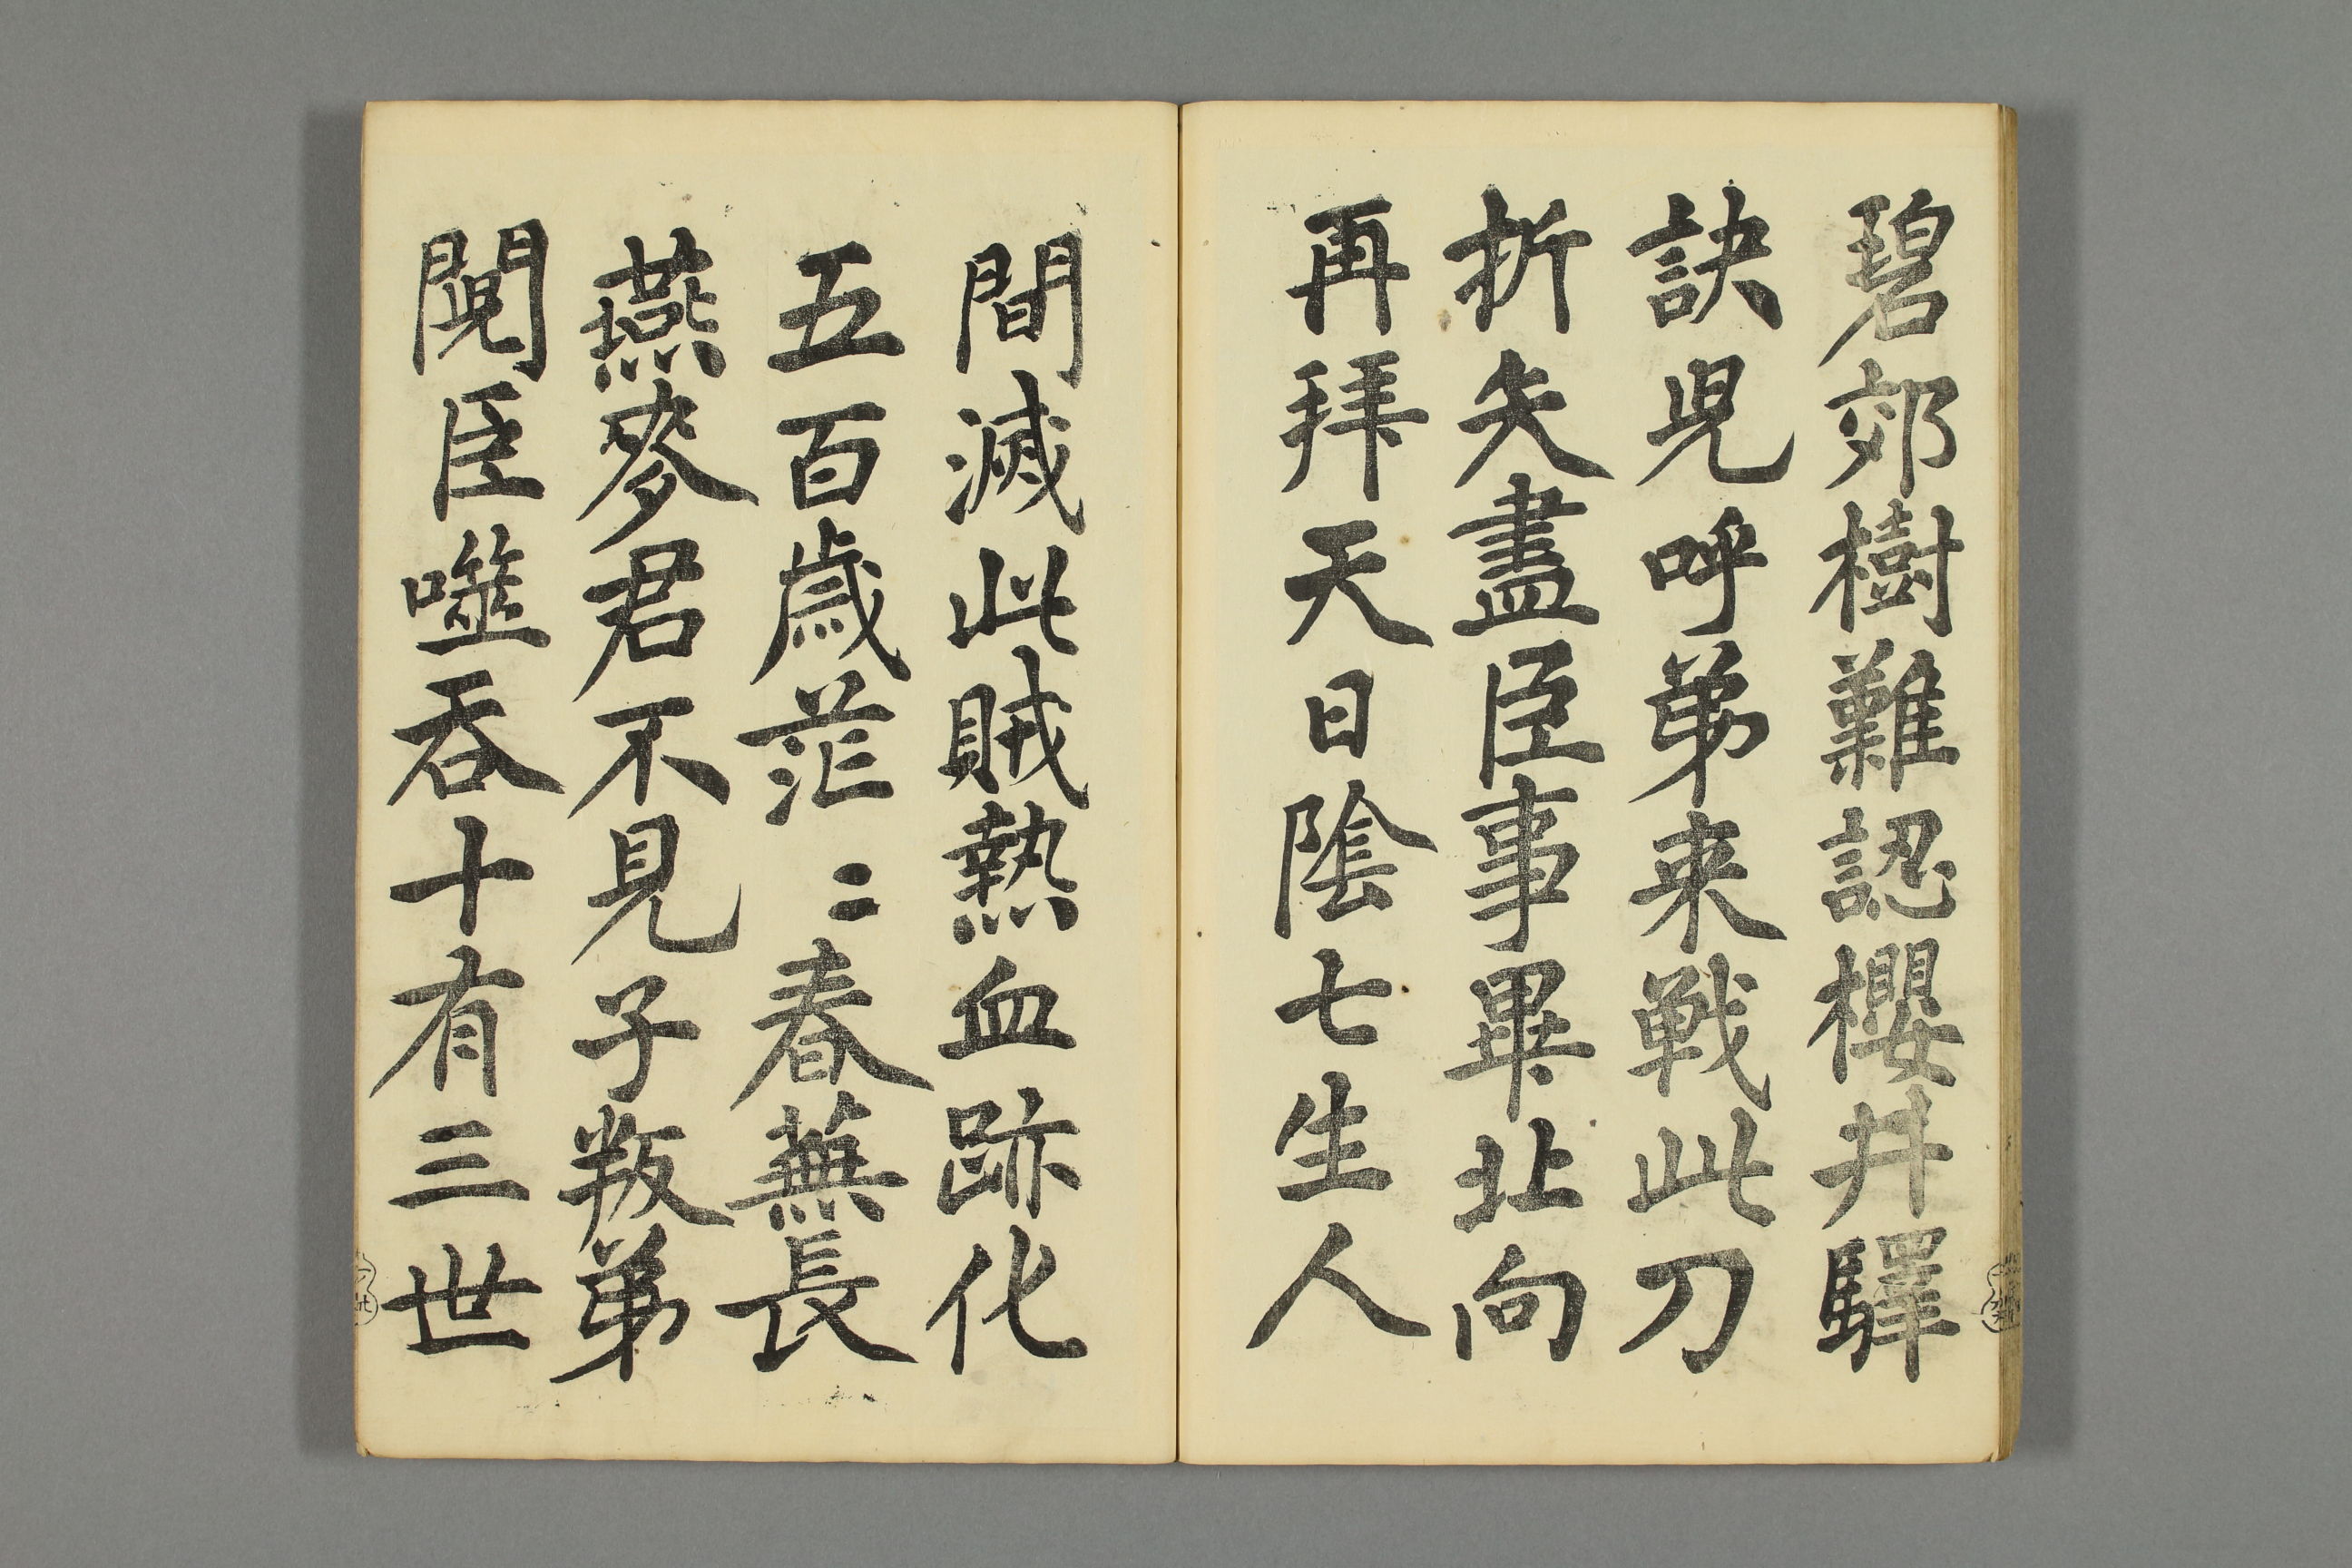 碧郊樹難認櫻井驛
訣児呼弟来戦此刀
折矢盡臣事畢北向
再拜天日陰七生人
間滅此賊熱血跡化
五百歳茫〻春蕪長
燕麥君不見子叛弟
鬩臣噬呑十有三世